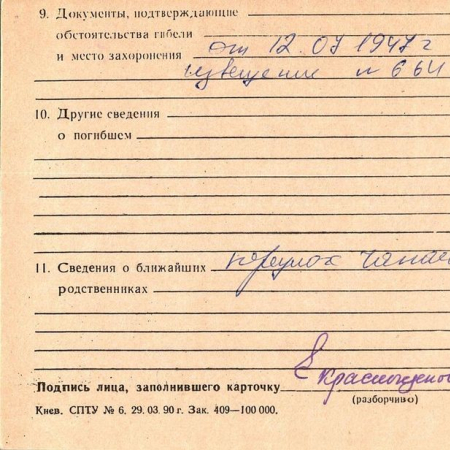 9. Документы, подтверждающие
обстоятельства гибели
и место захоронения от 12.07 1947 г
извещение n 664
10. Другие сведения
о погибшем
11. Сведения о ближайших переулок
родственниках
Подпись лица, заполнившего карточку
(разборчиво)
Киев. СПТУ № 6. 29. 03. 90 г. Зак. 409—100 000.